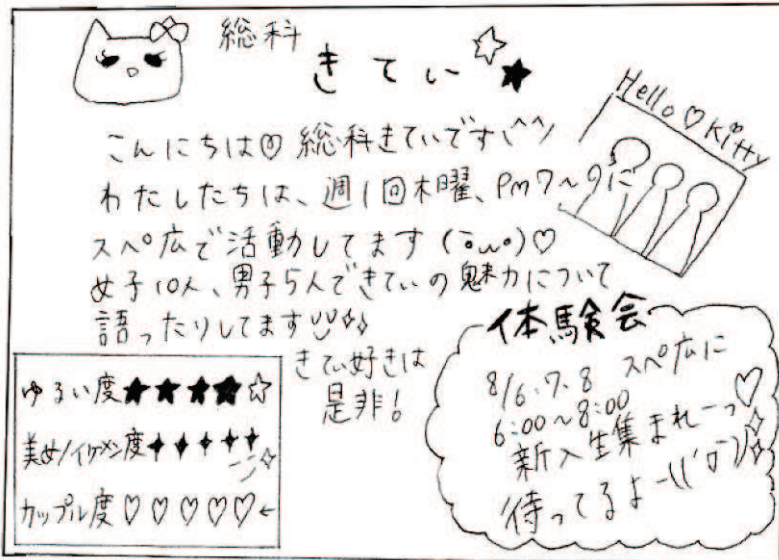 総科
きてぃ☆★
Hello♡Kitty
こんにちは♡ 総科きてぃです(^^)
わたしたちは、週1回木曜、PM7〜9に
スペ広で活動してます(ō ω o)♡
女子10人、男子5人できてぃの魅力について
語ったりしてます
きてぃ好きは
是非!
ゆるい度★★★★☆
美女/イケメン度✦✦✦✦✦
カップル度♡♡♡♡♡←
体験会
8/6.7.8 スペ広に
6:00〜8:00
新入生集まれーっ♡
待ってるよー((‘ロ‘))